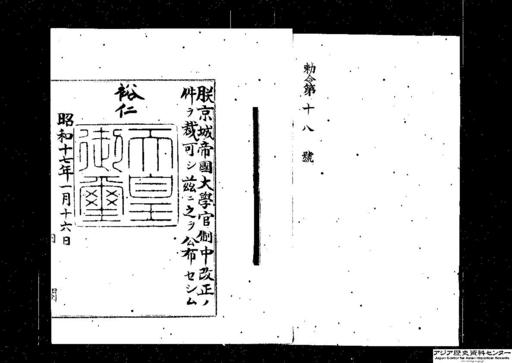 勅令第十八號
朕京城帝國大學官制中改正ノ
件ヲ裁可シ茲ニ之ヲ公布セシム
裕仁
天皇
御璽
昭和十七年一月十六日
アジア歴史資料センター
Japan Center for Asian Historical Records